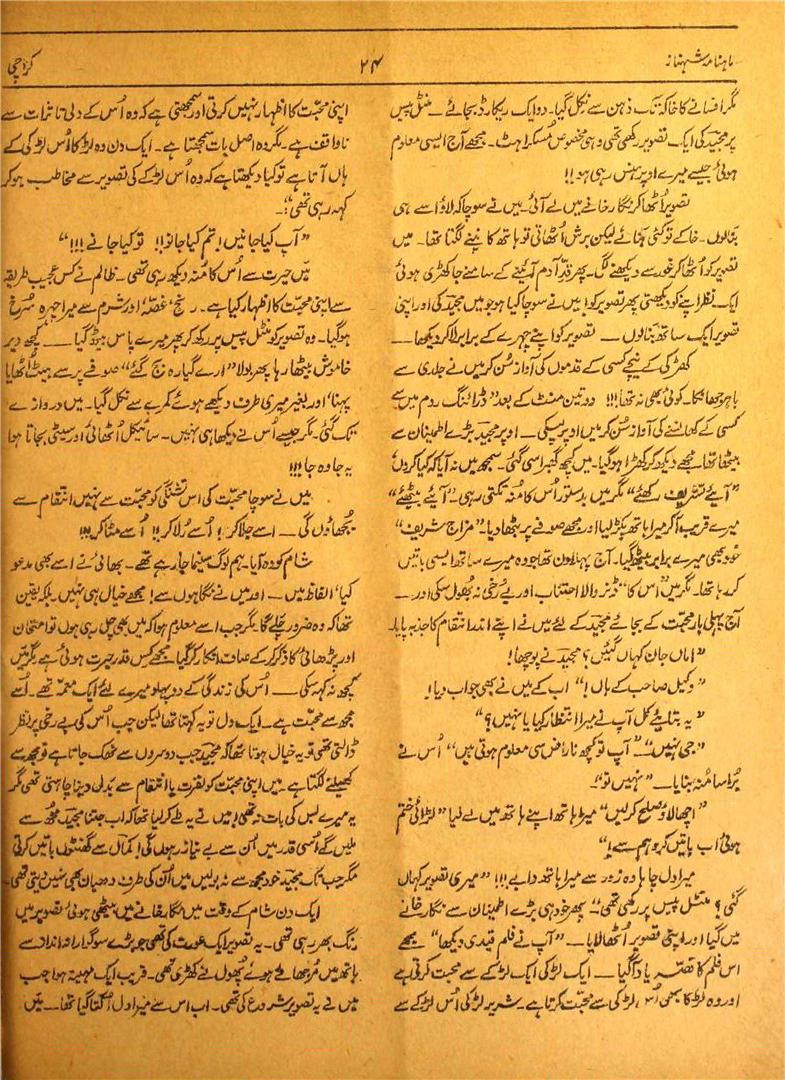 ماہنامہ شہناز
۲۴
کراچی
مگر افسانے کا خاکہ تک ذہن سے نکل گیا۔ دو ایک ریکارڈ بجائے۔ منٹل پیس
پر مجیدکی ایک تصویر رکھی تھی وہی مخصوص مُسکراہٹ۔ مجھے آج ایسی معلوم
ہوئی جیسے میرے اوپر ہنس رہی ہو!!
تصویر اُٹھا کر نگارخانے میں لے آئی۔ میں نے سوچا کہ لاؤ اسے ہی
بنالوں۔ خاکے تو کئی بنائے لیکن برش اُٹھاتی تو ہاتھ کانپنے لگتا تھا۔ میں
تصویر کو اُٹھا کر غور سے دیکھنے لگی۔ پھر قدِّ آدم آئینے کے سامنے جا کھڑی ہوئی
ایک نظر اپنے کو دیکھتی پھر تصویر کو! میں نے سوچا کیا ہو جو میں مجید کی اور اپنی
تصویر ایک ساتھ بنالوں — تصویر کو اپنے چہرے کے برابر لاکر دیکھا —
کھڑکی کے نیچے کسی کے قدموں کی آواز سُن کر میں نے جلدی سے
باہر جھانکا۔ کوئی بھی نہ تھا!!! دو تین منٹ کے بعد" ڈرائنگ روم میں سے
کسی کے کھانسنے کی آواز سُن کر میں ادھر لپکی۔ ادھر مجید بڑے اطمینان سے
بیٹھا تھا۔ مجھے دیکھ کر کھڑا ہوگیا۔ میں کچھ گھبرا سی گئی۔ سمجھ میں نہ آیا کہ کیا کروں
"آیئے تشریف رکھئے" مگر میں بدستور اُس کا مُنہ تکتی رہی۔ "آیئے بیٹھئے"
میرے قریب آکر میرا ہاتھ پکڑ لیا اور مجھے صوفے پر بٹھا دیا۔ "مزاج شریف"
خود بھی میرے برابر بیٹھ گیا۔ آج پہلا دن تھا جو وہ میرے ساتھ ایسی باتیں
کر رہا تھا۔ مگر میں "اس کا" ڈنر والا اجتناب اور بے رُخی نہ بھول سکی اور —
آج پہلی بار محبّت کے بجائے مجید کے لئے میں نے اپنے اندر انتقام کا جذبہ پایا۔
"اماں جان کہاں گئیں؟ مجید نے پوچھا!
"وکیل صاحب کے ہاں!" اب کے میں نے بھی جواب دیا!
"یہ بتایئے کل آپ نے میرا انتظار کیا یا نہیں؟"
"جی نہیں"۔ "آپ تو کچھ ناراض سی معلوم ہوتی ہیں" اُس نے
بُرا سا مُنہ بنایا۔ "نہیں تو"۔
"اچھا لاؤ صلح کرلیں" میرا ہاتھ اپنے ہاتھ میں لے لیا "لڑائی ختم
ہوئی اب باتیں کرو ہم سے!"
میرا دل چاہا وہ زور سے میرا ہاتھ دبائے!!! "میری تصویر کہاں
گئی؟ منٹل پیس پر رکھی تھی"۔ پھر خود ہی بڑے اطمینان سے نگارخانے
میں گیا اور اپنی تصویر اُٹھا لایا۔ "آپ نے فلم قیدی دیکھا" مجھے
اس فلم کا قصّہ یاد آگیا — ایک لڑکی ایک لڑکے سے محبت کرتی ہے
اور وہ لڑکا بھی اُس لڑکی سے محبّت کرتا ہے۔ شریر لڑکی اُس لڑکے سے
اپنی محبّت کا اظہار نہیں کرتی اور سمجھتی ہے کہ وہ اُس کے دلی تاثرات سے
ناواقف ہے۔ مگر وہ اصل بات سمجھتا ہے۔ ایک دن وہ لڑکا اُس لڑکی کے
ہاں آتا ہے تو کیا دیکھتا ہے کہ وہ اُس لڑکے کی تصویر سے مخاطب ہو کر
کہہ رہی تھی:۔
"آپ کیا جانیں! تم کیا جانو!! تو کیا جانے!!!"
میں حیرت سے اُس کا مُنہ دیکھ رہی تھی۔ ظالم نے کس عجیب طریقہ
سے اپنی محبّت کا اظہار کیا ہے۔ رنج، غصّہ، اور شرم سے میرا چہرہ سُرخ
ہوگیا۔ وہ تصویر کو منٹل پیس پر رکھ کر پھر میرے پاس بیٹھ گیا — کچھ دیر
خاموش بیٹھا رہا پھر بولا "ارے گیارہ بج گئے" صوفے پر سے ہیٹ اُٹھایا
پہنا' اور بغیر میری طرف دیکھے ہوئے کمرے سے نکل گیا۔ میں دروازے
تک گئی۔ مگر جیسے اُس نے دیکھا ہی نہیں۔ سائیکل اُٹھائی اور سیٹی بجاتا ہوا
یہ جا وہ جا!!!
میں نے سوچا محبّت کی اس تشنگی کو محبّت سے نہیں انتقام سے
بُجھاؤں گی — اسے جلا کر! اُسے رُلا کر!! اُسے مٹا کر!!!
شام کو وہ آیا۔ ہم لوگ سینما جارہے تھے۔ بھائی نے اسے بھی مدعو
کیا' الفاظ میں — اور میں نے نگاہوں سے! مجھے خیال ہی نہیں۔ بلکہ یقین
تھا کہ وہ ضرور چلے گا مگر جب اسے معلوم ہوا کہ میں بھی چل رہی ہوں تو امتحان
اور پڑھائی کا ذکر کر کے صاف انکار کر گیا۔ مجھے کس قدر حیرت ہوئی ہے مگر میں
کچھ نہ کہہ سکی — اُس کی زندگی کے دو پہلو میرے لئے ایک معمّہ تھے۔ اُسے
مجھ سے محبّت ہے۔ ایک دل تو یہ کہتا تھا لیکن جب اُس کی بے رخی پر نظر
ڈالتی تھی تو یہ خیال ہوتا تھا کہ مجید جب دوسروں سے تھک جاتا ہے تو مجھ سے
کھیلنے لگتا ہے۔ میں اپنی محبّت کو نفرت یا انتقام سے بدل دینا چاہتی تھی مگر
یہ میرے بس کی بات نہ تھی! میں نے یہ طے کر لیا تھا کہ اب جتنا مجید مجھ سے
ملیں گے اُسی قدر میں اُن سے بے نیاز رہوں گی! کمال سے گھنٹوں باتیں کرتی
مگر جب تک مجید خود مجھ سے نہ بولیں میں اُن کی طرف دھیان بھی نہیں دیتی تھی۔
ایک دن شام کے وقت میں نگارخانے میں بیٹھی ہوئی تصویر میں
رنگ بھر رہی تھی۔ یہ تصویر ایک عورت کی تھی جو بڑے سوگوارانہ انداز سے
ہاتھ میں مُرجھائے ہوئے پھول لئے کھڑی تھی۔ قریب ایک مہینہ ہوا جب
میں نے یہ تصویر شروع کی تھی۔ اب اس سے میرا دل اُکتا گیا تھا — میں